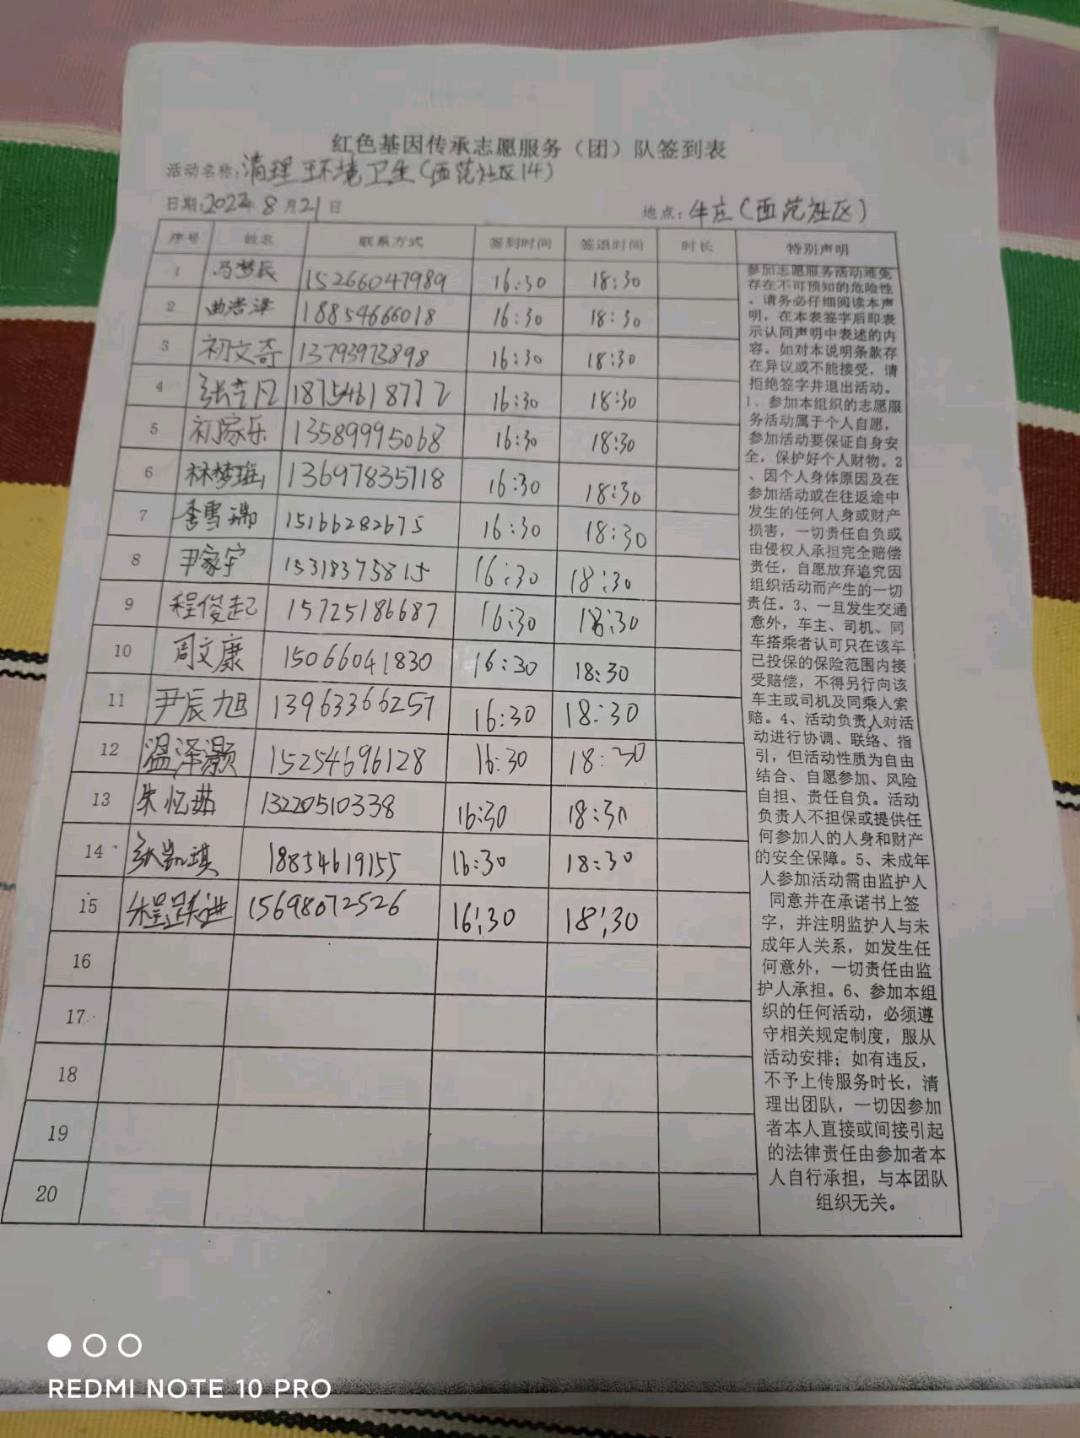 红色基因传承志愿服务（团）队签到表
活动名称：清理环境卫生（西范社区14）
日期：2022年8月21日 地点：牛庄（西范社区）
序号 姓名 联系方式 签到时间 签退时间 时长 特别声明
1 冯梦辰 15266047989 16:30 18:30
2 曲浩泽 18854666018 16:30 18:30
3 初文奇 13793973898 16:30 18:30
4 16:30 18:30
5 初家乐 13589995068 16:30 18:30
6 13697835718 16:30 18:30
7 季雪瑞 15166282675 16:30 18:30
8 尹家宇 15318375815 16:30 18:30
9 程俊起 15725186687 16:30 18:30
10 周文康 15066041830 16:30 18:30
11 尹辰旭 13963366257 16:30 18:30
12 温泽灏 15254696128 16:30 18:30
13 朱忆茹 13220510338 16:30 18:30
14 张凯琪 18854619155 16:30 18:30
15 15698072526 16:30 18:30
16
17
18
19
20
参加志愿服务活动难免
存在不可预知的危险性
，请务必仔细阅读本声
明，在本表签字后即表
示认同声明中表述的内
容。如对本说明条款存
在异议或不能接受，请
拒绝签字并退出活动。
1、参加本组织的志愿服
务活动属于个人自愿，
参加活动要保证自身安
全，保护好个人财物。2
、因个人身体原因及在
参加活动或在往返途中
发生的任何人身或财产
损害，一切责任自负或
由侵权人承担完全赔偿
责任，自愿放弃追究因
组织活动而产生的一切
责任。3、一旦发生交通
意外，车主、司机、同
车搭乘者认可只在该车
已投保的保险范围内接
受赔偿，不得另行向该
车主或司机及同乘人索
赔。4、活动负责人对活
动进行协调、联络、指
引，但活动性质为自由
结合、自愿参加、风险
自担、责任自负。活动
负责人不担保或提供任
何参加人的人身和财产
的安全保障。5、未成年
人参加活动需由监护人
同意并在承诺书上签
字，并注明监护人与未
成年人关系，如发生任
何意外，一切责任由监
护人承担。6、参加本组
织的任何活动，必须遵
守相关规定制度，服从
活动安排；如有违反，
不予上传服务时长，清
理出团队，一切因参加
者本人直接或间接引起
的法律责任由参加者本
人自行承担，与本团队
组织无关。
REDMI NOTE 10 PRO